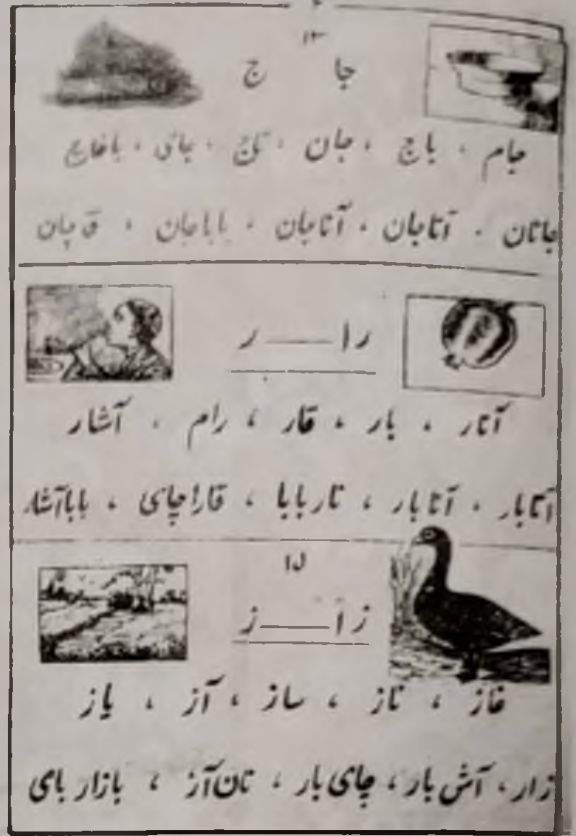 ۱۳
جا ج
جام ، باج ، جان ، تاج ، جای ، باغاج
جانان ، آتاجان ، آناجان ، باباجان ، قاچان
را ر
آنار ، بار ، قار ، رام ، آشار
آتابار ، آنابار ، ناربابا ، قاراچای ، باباآشار
۱۵
زا ز
غاز ، ناز ، ساز ، آز ، یاز
زار، آش بار ، چای بار ، نان آز ، بازاربای